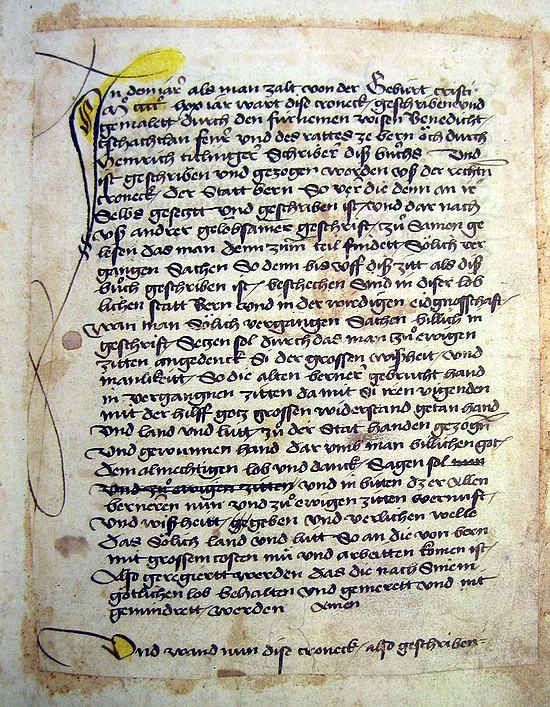 In dem jar als man zalt von der Gebürt cristi
M cccc lxx iar wart dise croneck geschriben und
gemalett durch den fürnemen wisen Benedicht
tschachtlan fenr und des rattes ze bern och durch
Heinrich titlinger Schriber diß buchs Und
ist geschriben und gezogen worden uß der rechten
croneck der Statt bern So ver die denn an ir
Selbs gesetzt und geschriben ist und dar nach
uß andrer gelobsamer geschrift zu Samen ge
lesen das man denn zum teil findett Sölich ver
gangen Sachen So denn bis uff diß zitt als diß
buch geschriben ist beschechen Sind in diser lob
lichen statt Bern und in der wirdigen eidgnosschaft
wan man Sölich vergangen Sachen billich in
geschrift Setzen sol durch das man zu ewigen
zitten angedenck Si der grossen wißheit und
manlikeitt So die alten berner gebrucht hand
in vergangnen zitten da mit Si iren vigenden
mit der hilff gotz grossen widerstand getan hand
und land und lütt zu der Stat handen gezogen
und gewunnen hand dar umb man billichen got
dem almechtigen lob und danck Sagen sol man
und zu ewigen zitten und in bitten dz er allen
berneren nun und zu ewigen zitten vernunft
und wißheitt gegeben und verlichen welle
das Sölich land und lütt So an die von bern
mit grossem costen mü und arbeitten komen ist
Also geregiertt werden das die nach Sinem
götlichen lob behalten und gemerett und nit
gemindrett werden Amen
Und wand nun dise croneck also geschriben